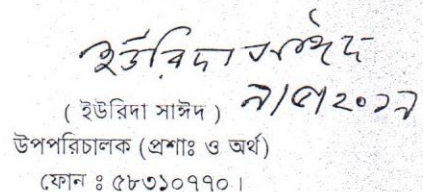 ইউরিদা সাঈদ
( ইউরিদা সাঈদ )
উপপরিচালক (প্রশাঃ ও অর্থ)
ফোন ঃ ৫৮৩১০৭৭০।